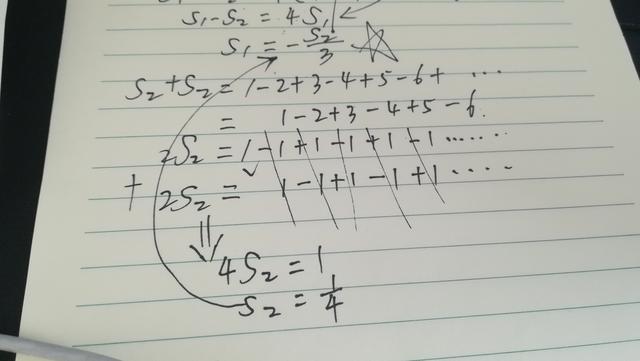 S₁-S₂ = 4S₁
S₁ = -S₂/3
S₂+S₂ = 1-2+3-4+5-6+ ...
= 1-2+3-4+5-6.
2S₂ = 1-1+1-1+1-1......
+ 2S₂ = 1-1+1-1+1....
4S₂ = 1
S₂ = 1/4